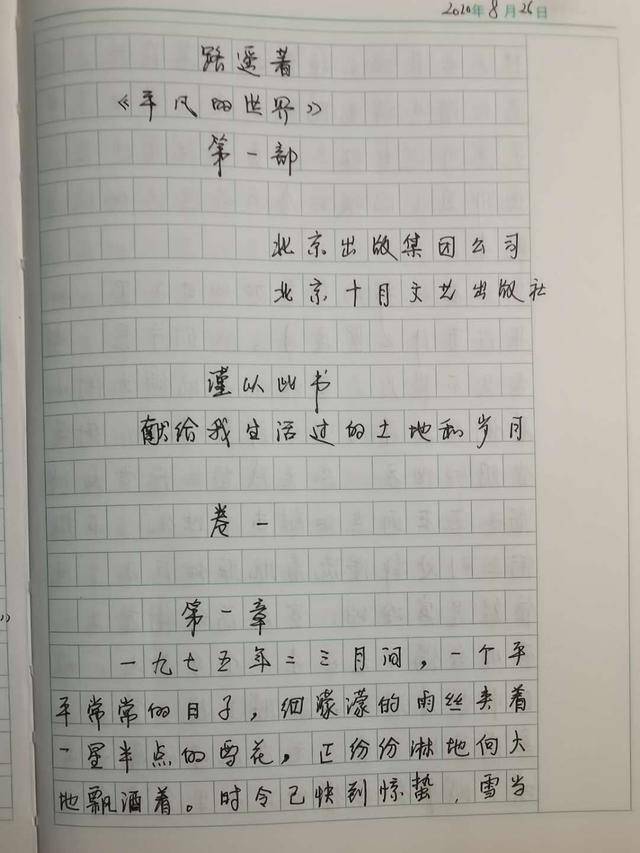 2020年8月26日
路遥著
《平凡的世界》
第一部
北京出版集团公司
北京十月文艺出版社
谨以此书
献给我生活过的土地和岁月
卷一
第一章
一九七五年二三月间，一个平
平常常的日子，细濛濛的雨丝夹着
一星半点的雪花，正纷纷淋地向大
地飘洒着。时令已快到惊蛰，雪当